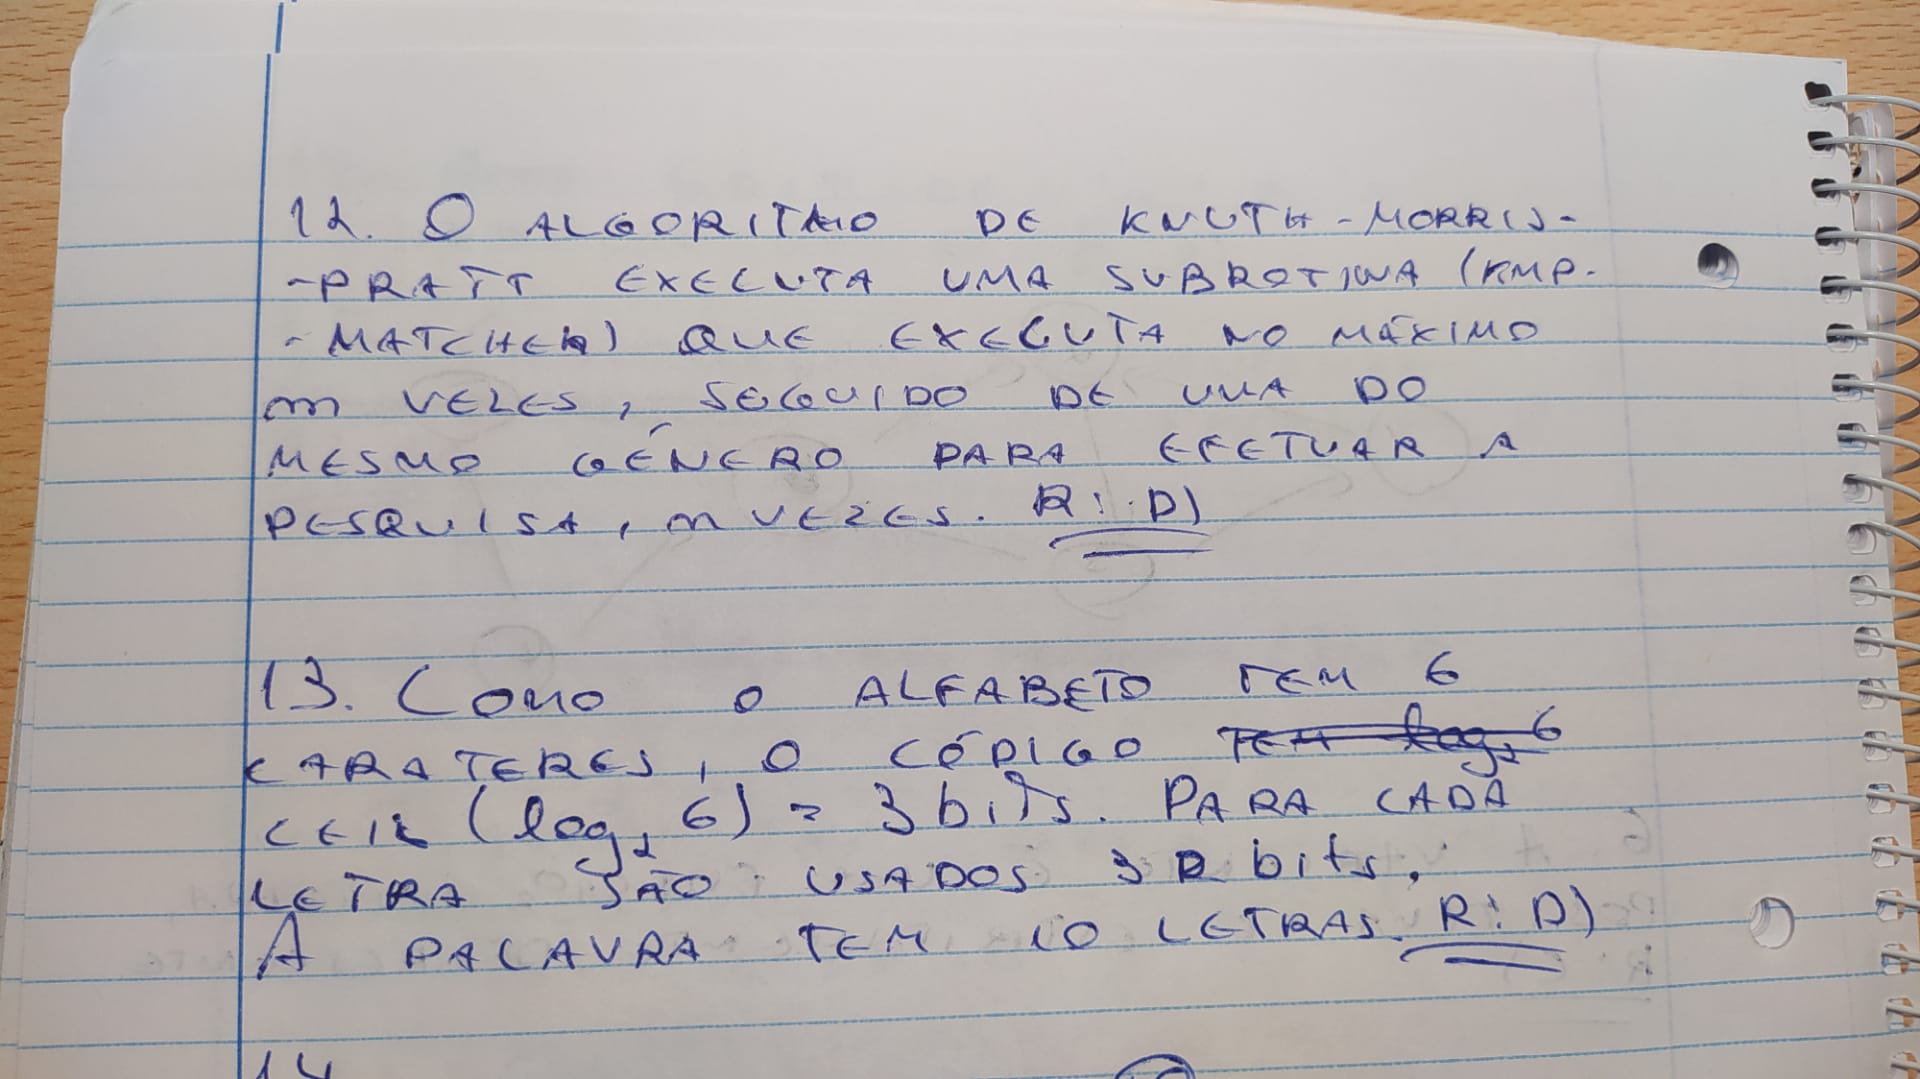 12. O ALGORITMO DE KNUTH-MORRIS-
-PRATT EXECUTA UMA SUBROTINA (KMP-
-MATCHER) QUE EXECUTA NO MÁXIMO
m VEZES, SEGUIDO DE UMA DO
MESMO GÉNERO PARA EFETUAR A
PESQUISA, m VEZES. R: D)
13. COMO O ALFABETO TEM 6
CARATERES, O CÓDIGO TEM log₂ 6
CEIL (log₂ 6) = 3 bits. PARA CADA
LETRA SÃO USADOS 3 bits,
A PALAVRA TEM 10 LETRAS. R: D)
14